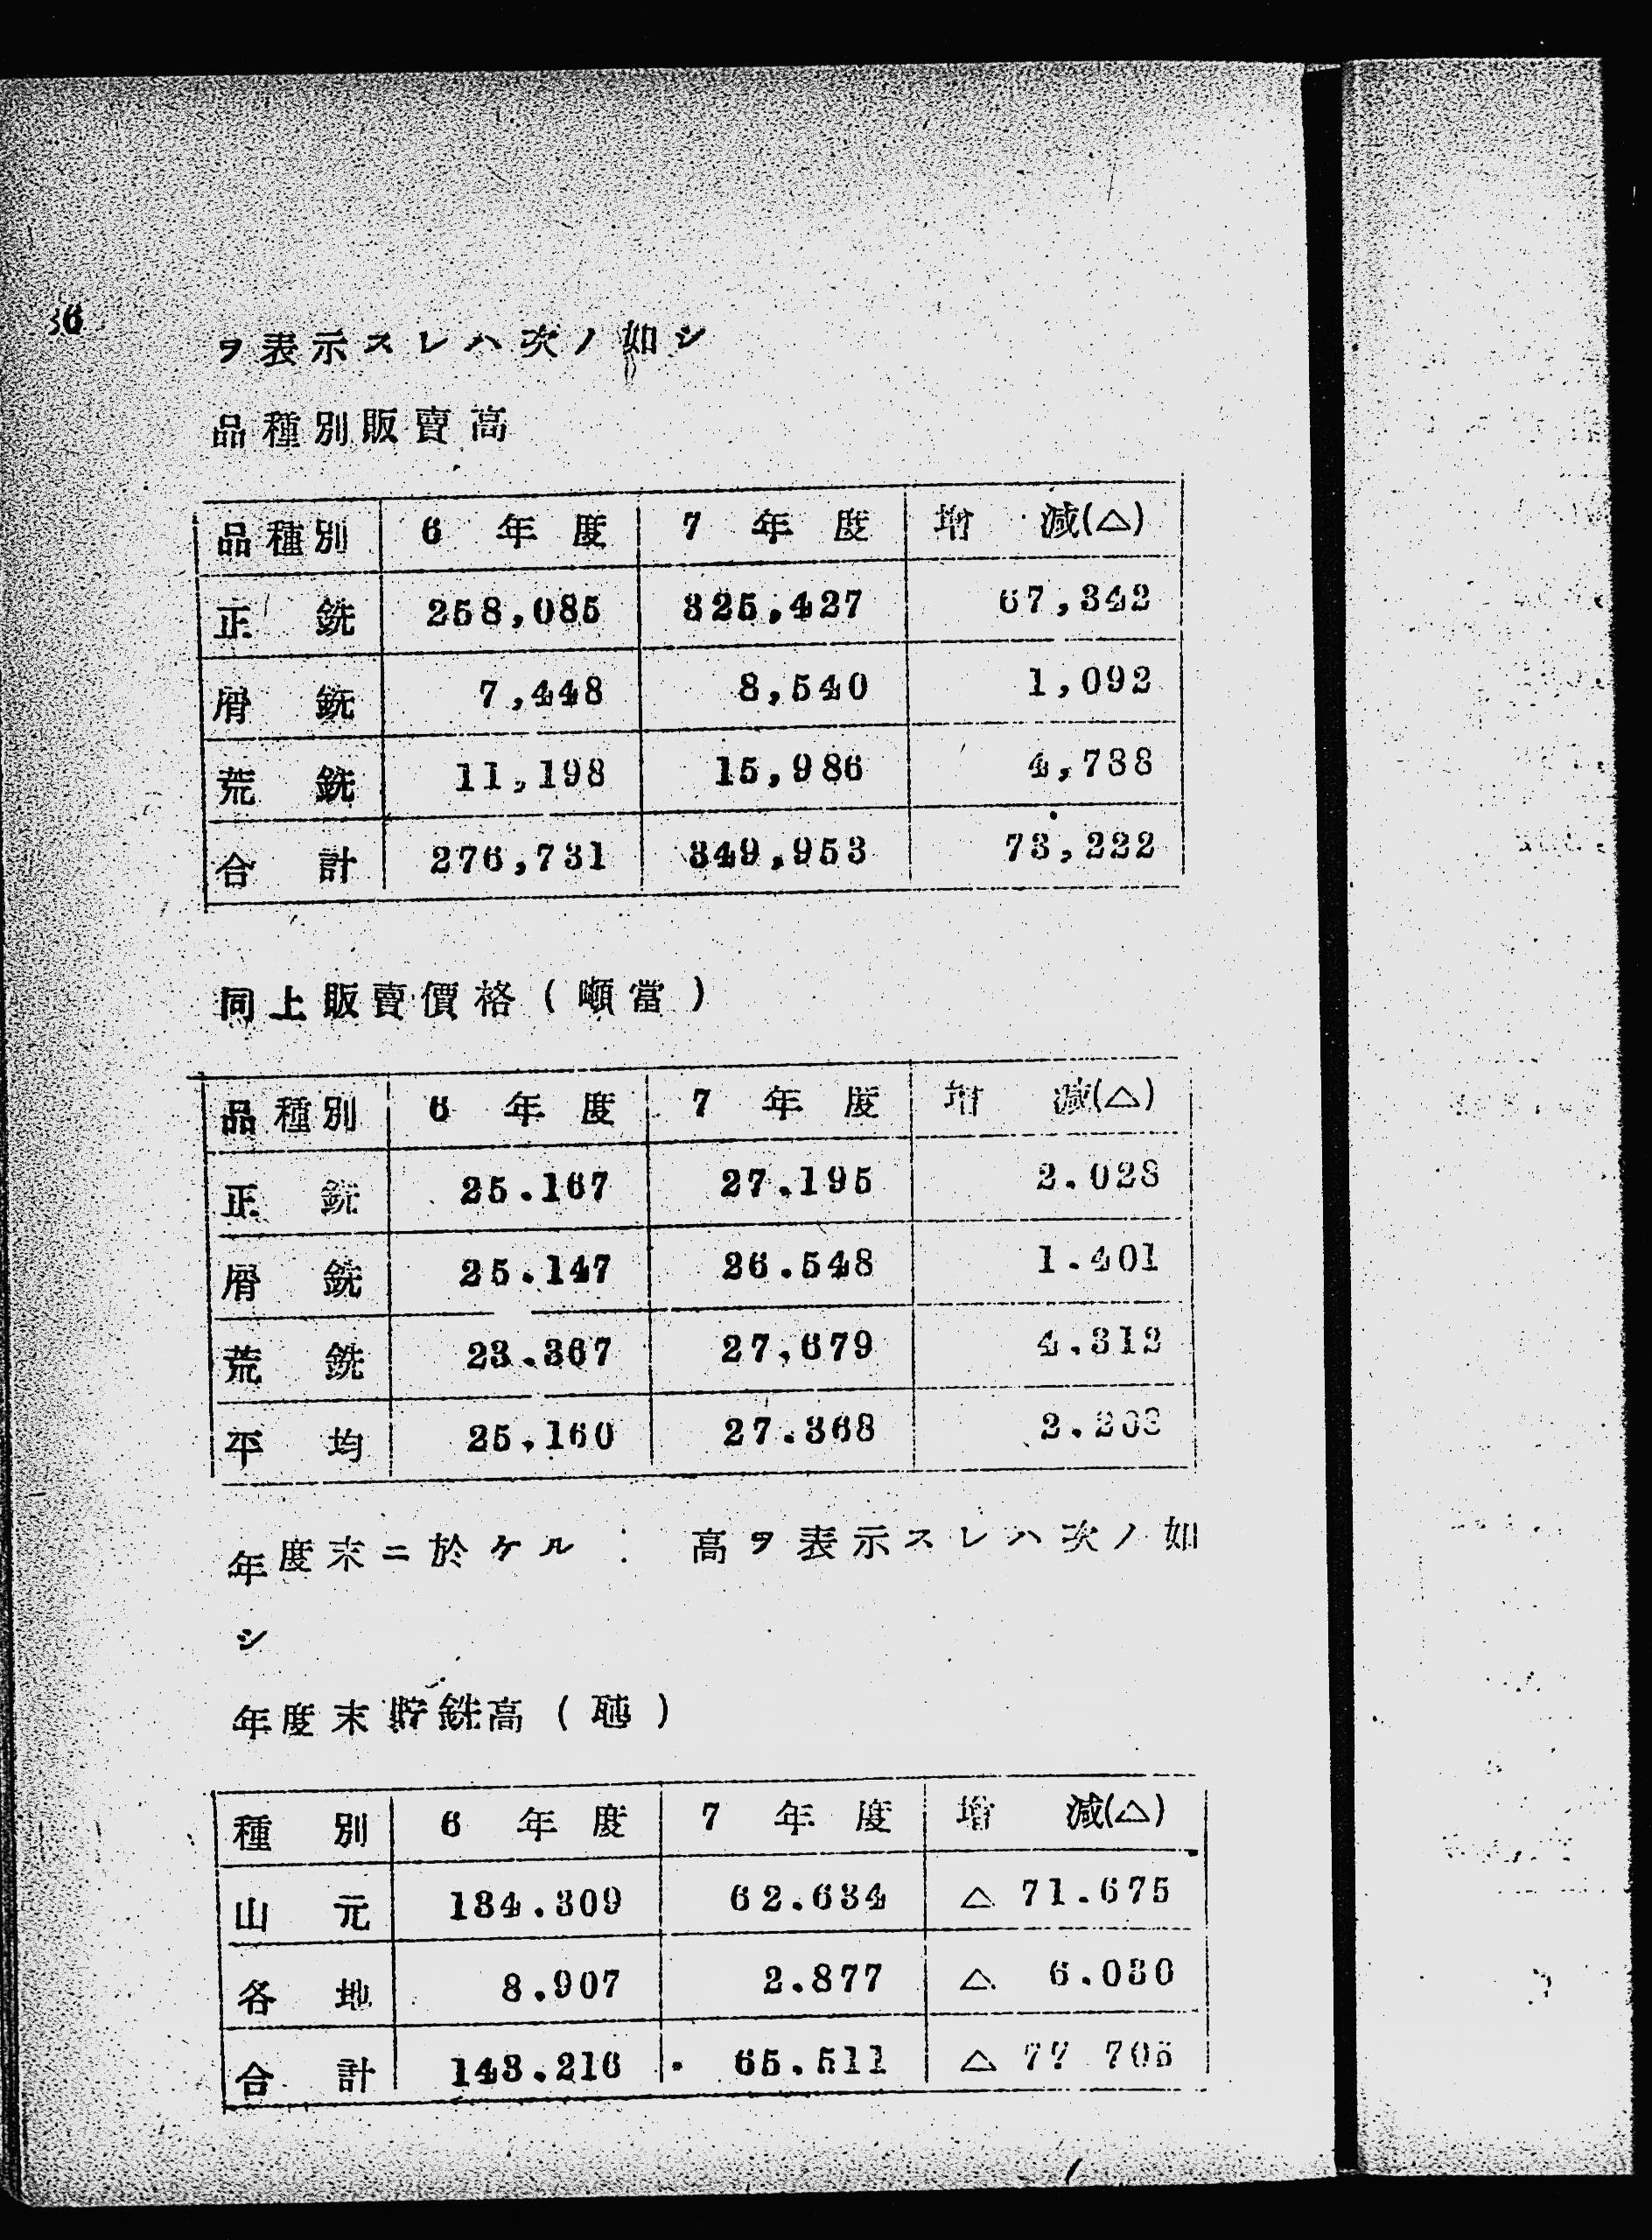 36
ヲ表示スレハ次ノ如シ
品種別販賣高
品種別 6年度 7年度 增減(△)
正銑 258,085 325,427 67,342
屑銑 7,448 8,540 1,092
荒銑 11,198 15,986 4,788
合計 276,731 349,953 73,222
同上販賣價格(噸當)
品種別 6年度 7年度 增減(△)
正銑 25.167 27.195 2.028
屑銑 25.147 26.548 1.401
荒銑 23.367 27,679 4.312
平均 25,160 27.368 2.208
年度末ニ於ケル 高ヲ表示スレハ次ノ如
シ
年度末貯銑高( )
種別 6年度 7年度 增減(△)
山元 134.309 62.634 △71.675
各地 8.907 2.877 △6.030
合計 143.216 65.511 △77 705